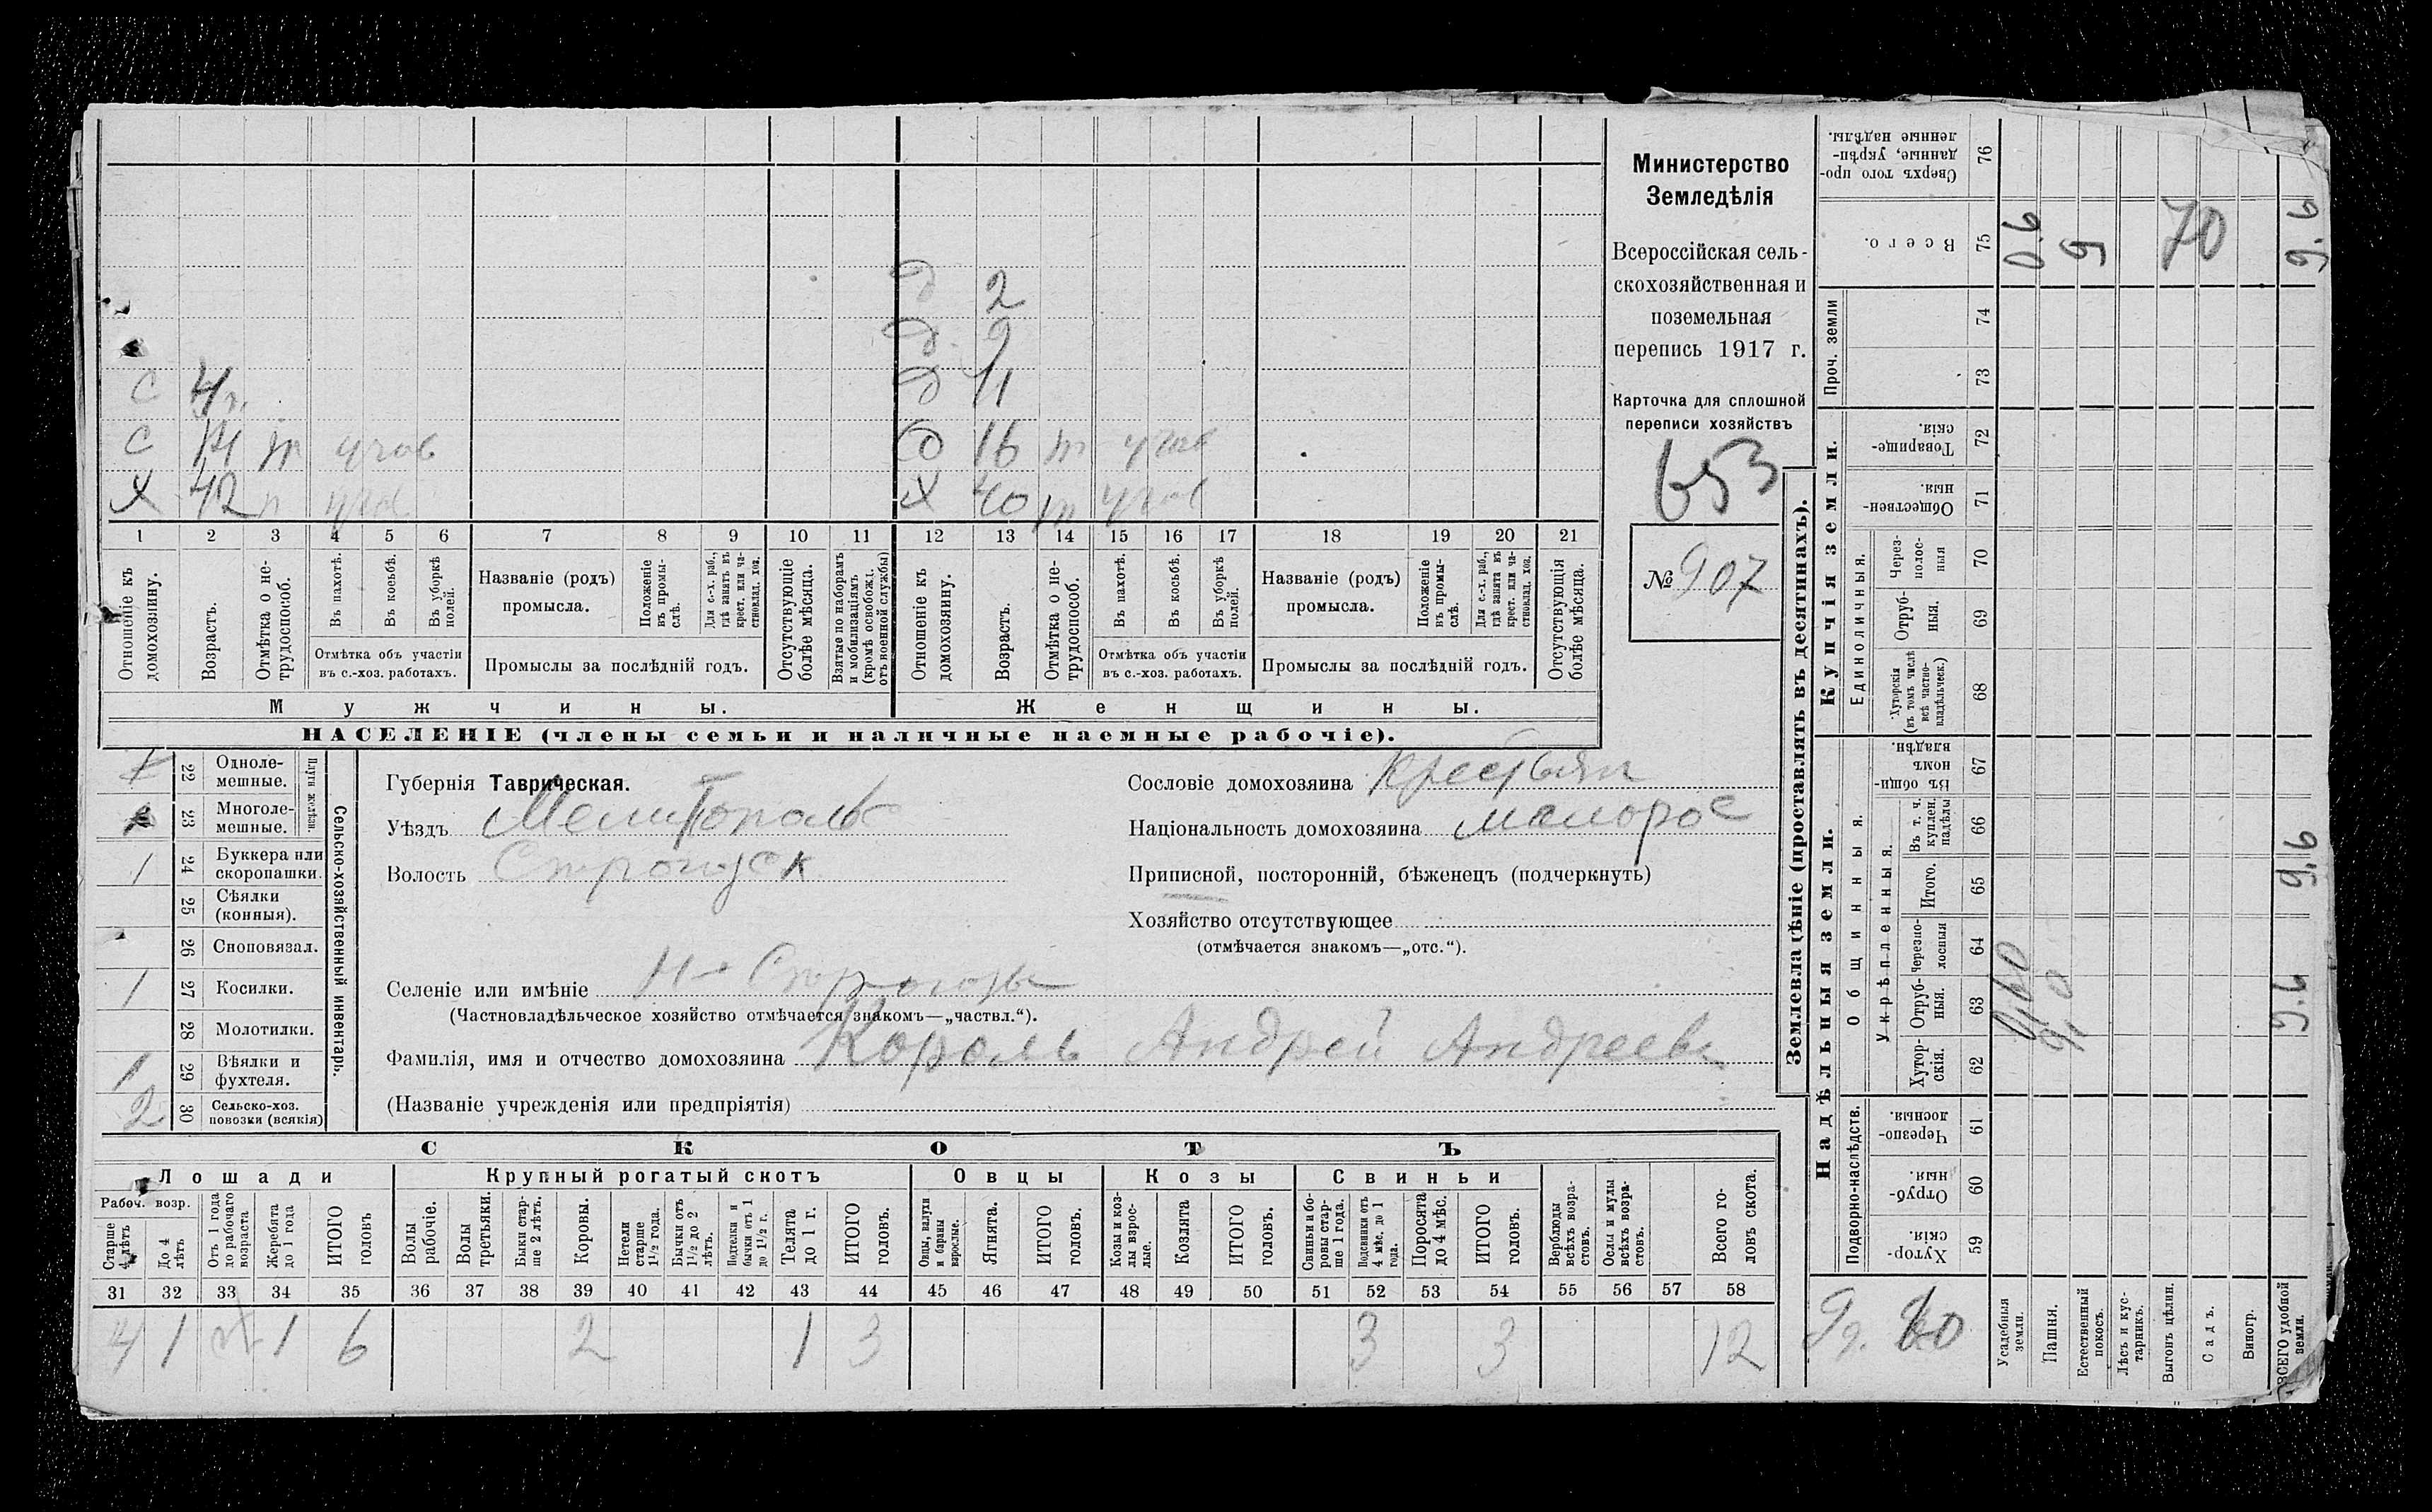 д 2
д 9
С 4 д 11
С 14 п учав О 16 п учав
Х 42 п учав Х 40 п учав
1 2 3 4 5 6 7 8 9 10 11 12 13 14 15 16 17 18 19 20 21
Отношеніе къ домохозяину.
Возрастъ.
Отмѣтка о не-трудоспособ.
Въ пахотѣ.
Въ косьбѣ.
Въ уборкѣ полей.
Отмѣтка объ участіи
въ с.-хоз. работахъ.
Названіе (родъ)
промысла.
Положеніе въ промы-слѣ.
Для с.-х. раб., гдѣ занятъ въ крест. или ча-стновлад. хоз.
Промыслы за послѣдній годъ.
Отсутствующіе болѣе мѣсяца.
Взятые по наборамъ и мобилизаціямъ (кромѣ освобожд. отъ военной службы)
Отношеніе къ домохозяину.
Возрастъ.
Отмѣтка о не-трудоспособ.
Въ пахотѣ.
Въ косьбѣ.
Въ уборкѣ полей.
Отмѣтка объ участіи
въ с.-хоз. работахъ.
Названіе (родъ)
промысла.
Положеніе въ промы-слѣ.
Для с.-х. раб., гдѣ занята въ крест. или ча-стновлад. хоз.
Промыслы за послѣдній годъ.
Отсутствующія болѣе мѣсяца.
Мужчины. Женщины.
НАСЕЛЕНІЕ (члены семьи и наличные наемные рабочіе).
Министерство
Земледѣлія
Всероссійская сель-
скохозяйственная и
поземельная
перепись 1917 г.
Карточка для сплошной
переписи хозяйствъ
653
№ 907
22 Одноле-мешные.
23 Многоле-мешные.
Плуги желѣзн.
1 24 Буккера или скоропашки.
25 Сѣялки (конныя).
26 Сноповязал.
1 27 Косилки.
28 Молотилки.
1 29 Вѣялки и фухтеля.
2 30 Сельско-хоз. повозки (всякія)
Сельско-хозяйственный инвентарь.
Губернія Таврическая.
Уѣздъ Мелитополь
Волость
Селеніе или имѣніе Н Строгозы
(Частновладѣльческое хозяйство отмѣчается знакомъ—„частвл.“).
Фамилія, имя и отчество домохозяина Король Андрей Андреев
(Названіе учрежденія или предпріятія)
Сословіе домохозяина Крестьян
Національность домохозяина малорос
Приписной, посторонній, бѣженецъ (подчеркнуть)
Хозяйство отсутствующее
(отмѣчается знакомъ—„отс.“).
СКОТЪ
Лошади Крупный рогатый скотъ Овцы Козы Свиньи
Рабоч. возр.
Старше 4 лѣтъ
До 4 лѣтъ
Отъ 1 года до рабочаго возраста
Жеребята до 1 года
ИТОГО головъ
Волы рабочіе.
Волы третьяки.
Быки стар-ше 2 лѣтъ.
Коровы.
Нетели старше 1½ года.
Бычки отъ 1½ до 2 лѣтъ.
Подтелки и бычки отъ 1 до 1½ г.
Телята до 1 г.
ИТОГО головъ.
Овцы, валухи и бараны взрослые.
Ягнята.
ИТОГО головъ.
Козы и коз-лы взрос-лые.
Козлята
ИТОГО головъ.
Свиньи и бо-ровы стар-ше 1 года.
Подсвинки отъ 4 мѣс. до 1 года.
Поросята до 4 мѣс.
ИТОГО головъ.
Верблюды всѣхъ возра-стовъ.
Ослы и мулы всѣхъ возра-стовъ.
Всего го-ловъ скота.
31 32 33 34 35 36 37 38 39 40 41 42 43 44 45 46 47 48 49 50 51 52 53 54 55 56 57 58
4 1 1 6 2 1 3 3 3 12
Землевладѣніе (проставлять въ десятинахъ).
Надѣльныя земли. Купчія земли. Проч. земли
Подворно-наслѣдств.
Общинныя.
Укрѣпленныя.
Единоличныя.
Хутор-скія. 59
Отруб-ныя. 60
Черезпо-лосныя 61
Хутор-скія. 62
Отруб-ныя. 63
Черезпо-лосныя 64
Итого. 65
Въ т. ч. куплен. надѣлы 66
Въ общи-номъ владѣн. 67
Хуторскія (въ томъ числѣ всѣ частно-владѣльческ.) 68
Отруб-ныя. 69
Черезъ-полос-ныя 70
Обществен-ныя. 71
Товарище-скія. 72
73
74
Всего. 75
Сверхъ того про-данные, укрѣп-ленные надѣлы. 76
Усадебныя земли.
Пашня.
Естественный покосъ.
Лѣсъ и кус-тарникъ.
Выгонъ цѣлин.
Садъ.
Виногр.
ВСЕГО удобной земли.
0.6
9
70
9.6
9.6
9.6